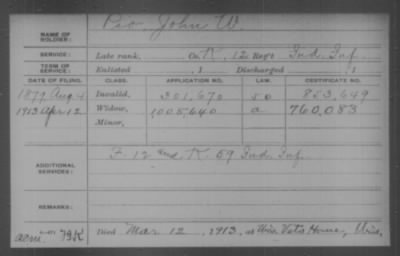 NAME OF SOLDIER: John W.
SERVICE: Late rank, Co. K, 12 Reg't Ind. Inf.
TERM OF SERVICE: Enlisted , 1 Discharged , 1
DATE OF FILING. CLASS. APPLICATION NO. LAW. CERTIFICATE NO.
1879 Aug. 4 Invalid, 301,670 853,649
1913 Apr 12 Widow, 1005,640 a 760,083
Minor,
ADDITIONAL SERVICES: F 12 and K 59 Ind. Inf.
REMARKS:
Died Mar 12, 1913, at Wis. Vets Home, Wis.